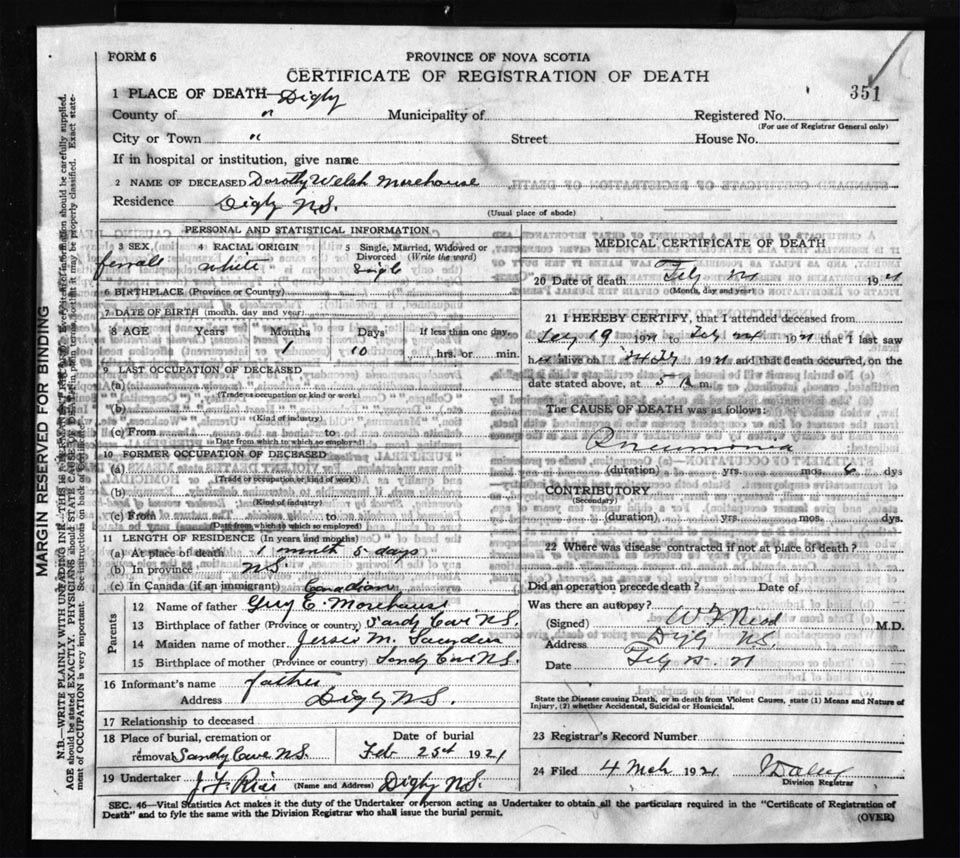 FORM 6
PROVINCE OF NOVA SCOTIA
CERTIFICATE OF REGISTRATION OF DEATH
351
1 PLACE OF DEATH—Digby
County of " Municipality of Registered No.
(For use of Registrar General only)
City or Town " Street House No.
If in hospital or institution, give name
2 NAME OF DECEASED Dorothy Welsh Morehouse
Residence Digby N.S.
(Usual place of abode)
PERSONAL AND STATISTICAL INFORMATION
3 SEX 4 RACIAL ORIGIN 5 Single, Married, Widowed or
Divorced (Write the word)
female white single
6 BIRTHPLACE (Province or Country)
7 DATE OF BIRTH (month, day and year)
8 AGE Years Months Days If less than one day,
1 10 hrs. or min.
9 LAST OCCUPATION OF DECEASED
(a)
(Trade or occupation or kind or work)
(b)
(Kind of industry)
(c) From to
(Date from which to which so employed)
10 FORMER OCCUPATION OF DECEASED
(a)
(Trade or occupation or kind of work)
(b)
(Kind of industry)
(c) From to
(Date from which so which so employed)
11 LENGTH OF RESIDENCE (In years and months)
(a) At place of death 1 month 5 days
(b) In province N.S.
(c) In Canada (if an immigrant) Canadian
Parents
12 Name of father Guy E. Morehouse
13 Birthplace of father (Province or country) Sandy Cove N.S.
14 Maiden name of mother M. Saunders
15 Birthplace of mother (Province or country) Sandy Cove N.S.
16 Informant's name father
Address Digby N.S.
17 Relationship to deceased
18 Place of burial, cremation or Date of burial
removal Sandy Cove N.S. Feb 25th 1921
19 Undertaker J. F. Rice (Name and Address) Digby N.S.
MEDICAL CERTIFICATE OF DEATH
20 Date of death Feby 24 1921
(Month, day and year)
21 I HEREBY CERTIFY, that I attended deceased from
Feby 19 1921 to Feby 24 1921 that I last saw
her alive on 24 Feby 1921 and that death occurred, on the
date stated above, at 5 m.
The CAUSE OF DEATH was as follows:
Pneumonia
(duration) yrs. mos. 6 dys
CONTRIBUTORY
(Secondary)
(duration) yrs. mos. dys.
22 Where was disease contracted if not at place of death?
Did an operation precede death? Date of
Was there an autopsy?
(Signed) M.D.
Address Digby N.S.
Date Feby 21
State the Disease causing Death, or in death from Violent Causes, state (1) Means and Nature of
Injury, (2) whether Accidental, Suicidal or Homicidal.
23 Registrar's Record Number
24 Filed 4 Mch 1921
Division Registrar
SEC. 46—Vital Statistics Act makes it the duty of the Undertaker or person acting as Undertaker to obtain all the particulars required in the "Certificate of Registration of
Death" and to fyle the same with the Division Registrar who shall issue the burial permit.
(OVER)
MARGIN RESERVED FOR BINDING
N.B.—WRITE PLAINLY WITH UNFADING INK—THIS IS
AGE should be stated EXACTLY. PHYSICIANS should STATE CAUSE OF